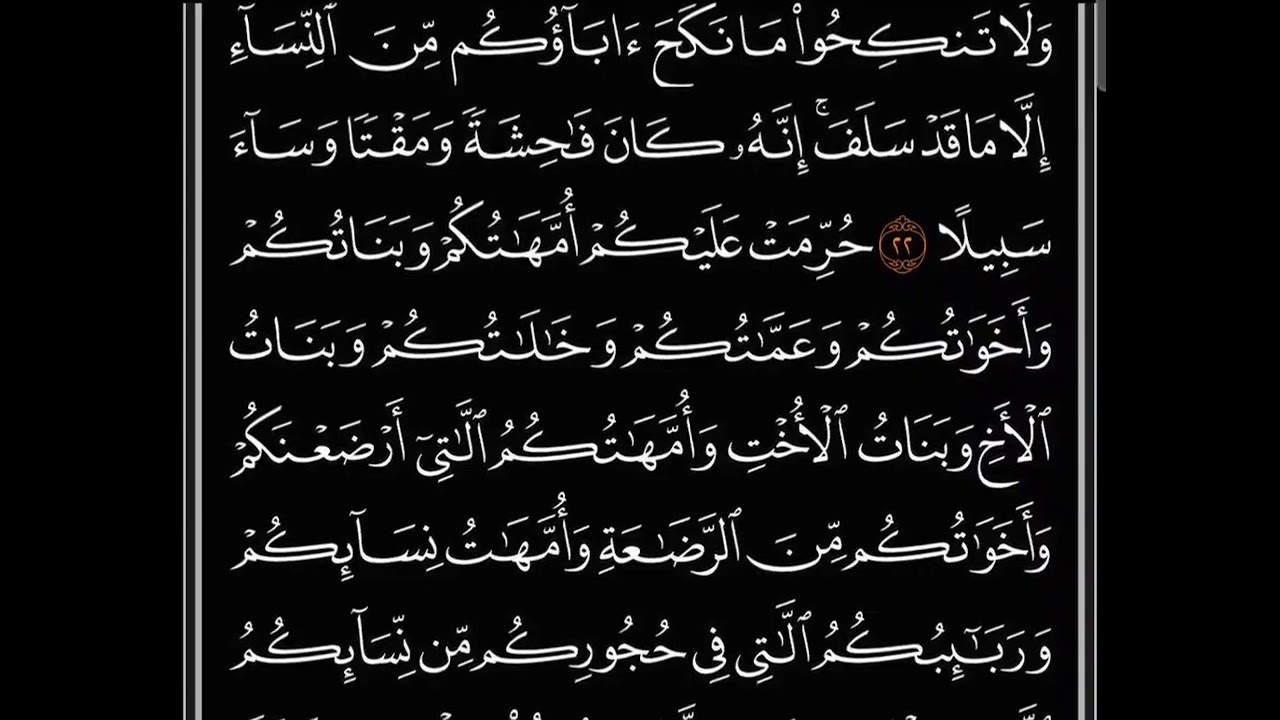 وَلَا تَنكِحُوا۟ مَا نَكَحَ ءَابَآؤُكُم مِّنَ ٱلنِّسَآءِ
إِلَّا مَا قَدْ سَلَفَ ۚ إِنَّهُۥ كَانَ فَـٰحِشَةً وَمَقْتًا وَسَآءَ
سَبِيلًا ٢٢ حُرِّمَتْ عَلَيْكُمْ أُمَّهَـٰتُكُمْ وَبَنَاتُكُمْ
وَأَخَوَٰتُكُمْ وَعَمَّـٰتُكُمْ وَخَـٰلَـٰتُكُمْ وَبَنَاتُ
ٱلْأَخِ وَبَنَاتُ ٱلْأُخْتِ وَأُمَّهَـٰتُكُمُ ٱلَّـٰتِىٓ أَرْضَعْنَكُمْ
وَأَخَوَٰتُكُم مِّنَ ٱلرَّضَـٰعَةِ وَأُمَّهَـٰتُ نِسَآئِكُمْ
وَرَبَـٰٓئِبُكُمُ ٱلَّـٰتِى فِى حُجُورِكُم مِّن نِّسَآئِكُمُ